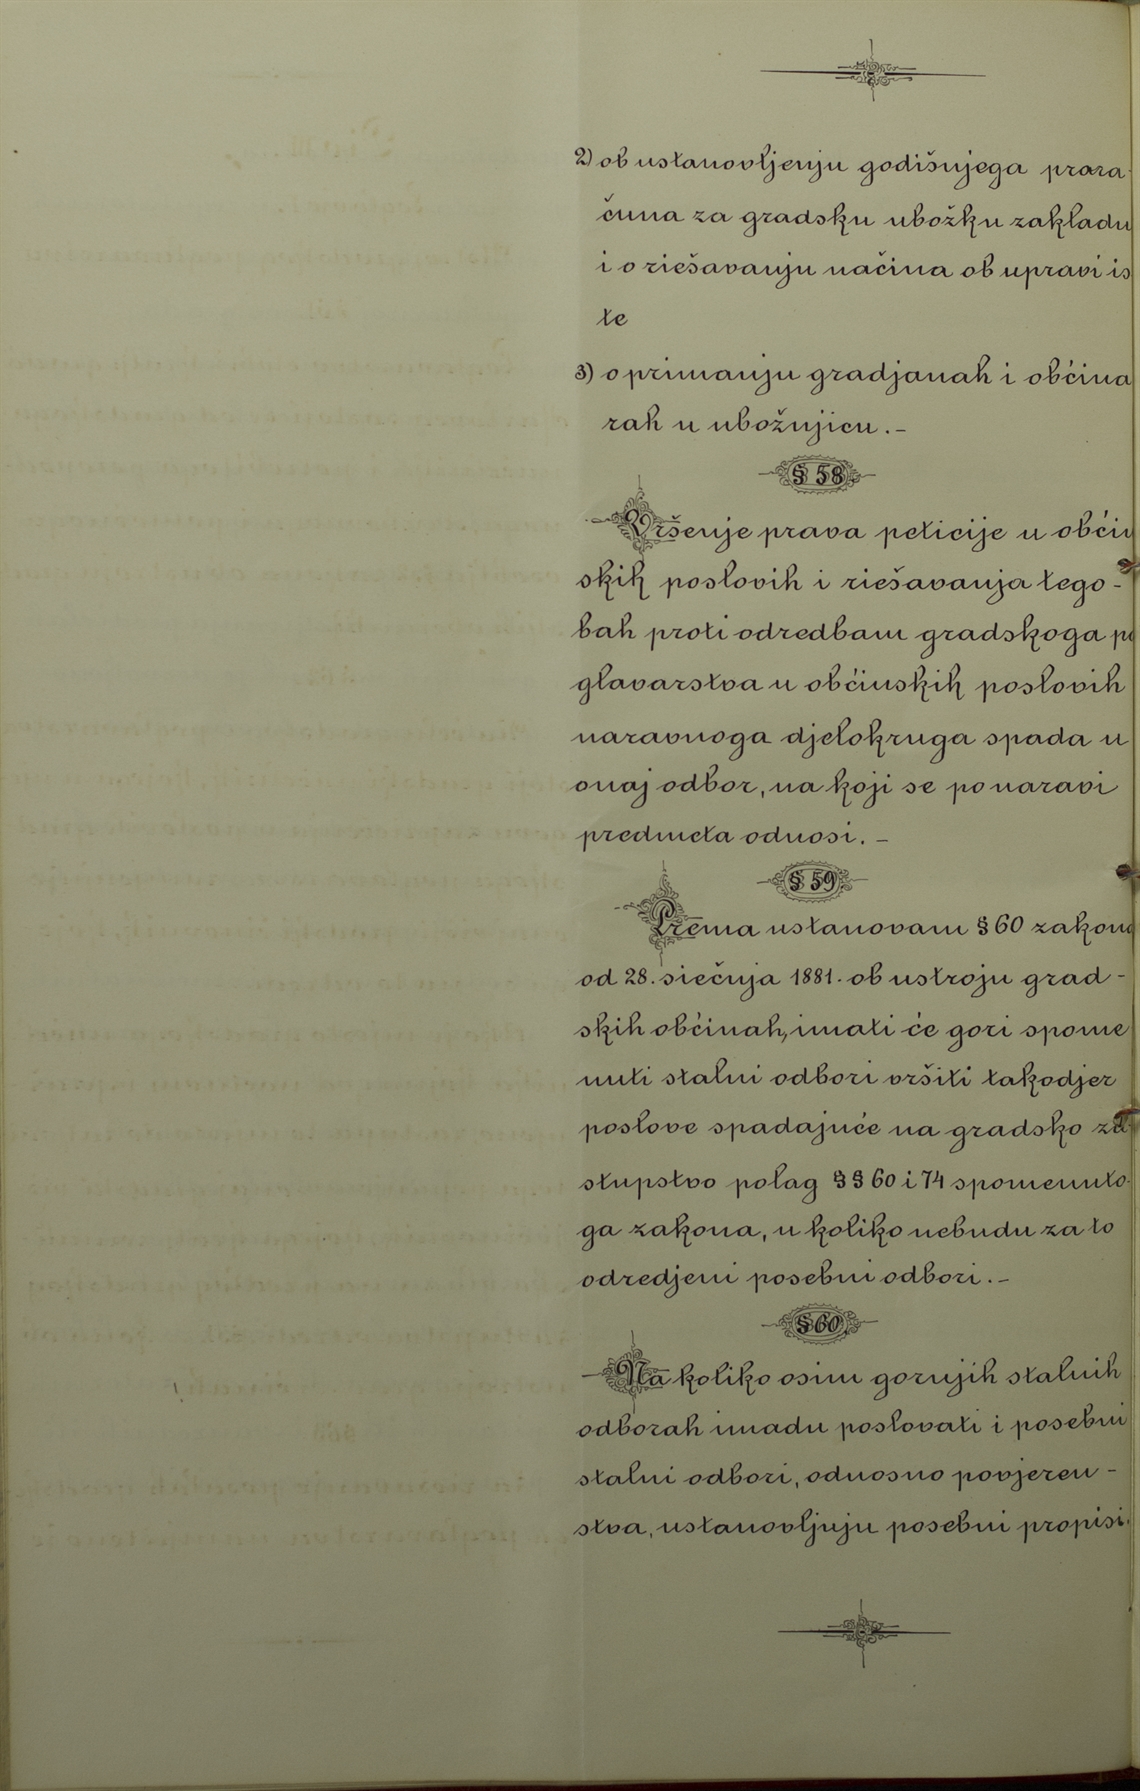 2) ob ustanovljenju godišnjega prora-
čuna za gradsku ubožku zakladu
i o riešavanju načina ob upravi is
te
3) o primanju gradjanah i občina
rah u ubožnjicu.–
§ 58
Vršenje prava peticije u občin
skih poslovih i riešavanja tego-
bah proti odredbam gradskoga po
glavarstva u občinskih poslovih
naravnoga djelokruga spada u
onaj odbor, na koji se po naravi
predmeta odnosi.–
§ 59
Prema ustanovam § 60 zakona
od 28. siečnja 1881. ob ustroju grad-
skih občinah, imati će gori spome
nuti stalni odbori vršiti takodjer
poslove spadajuće na gradsko za
stupstvo polag §§ 60 i 74 spomenuto-
ga zakona, u koliko nebudu za to
odredjeni posebni odbori.–
§ 60
Na koliko osim gornjih stalnih
odborah imadu poslovati i posebni
stalni odbori, odnosno povjeren-
stva, ustanovljuju posebni propisi.